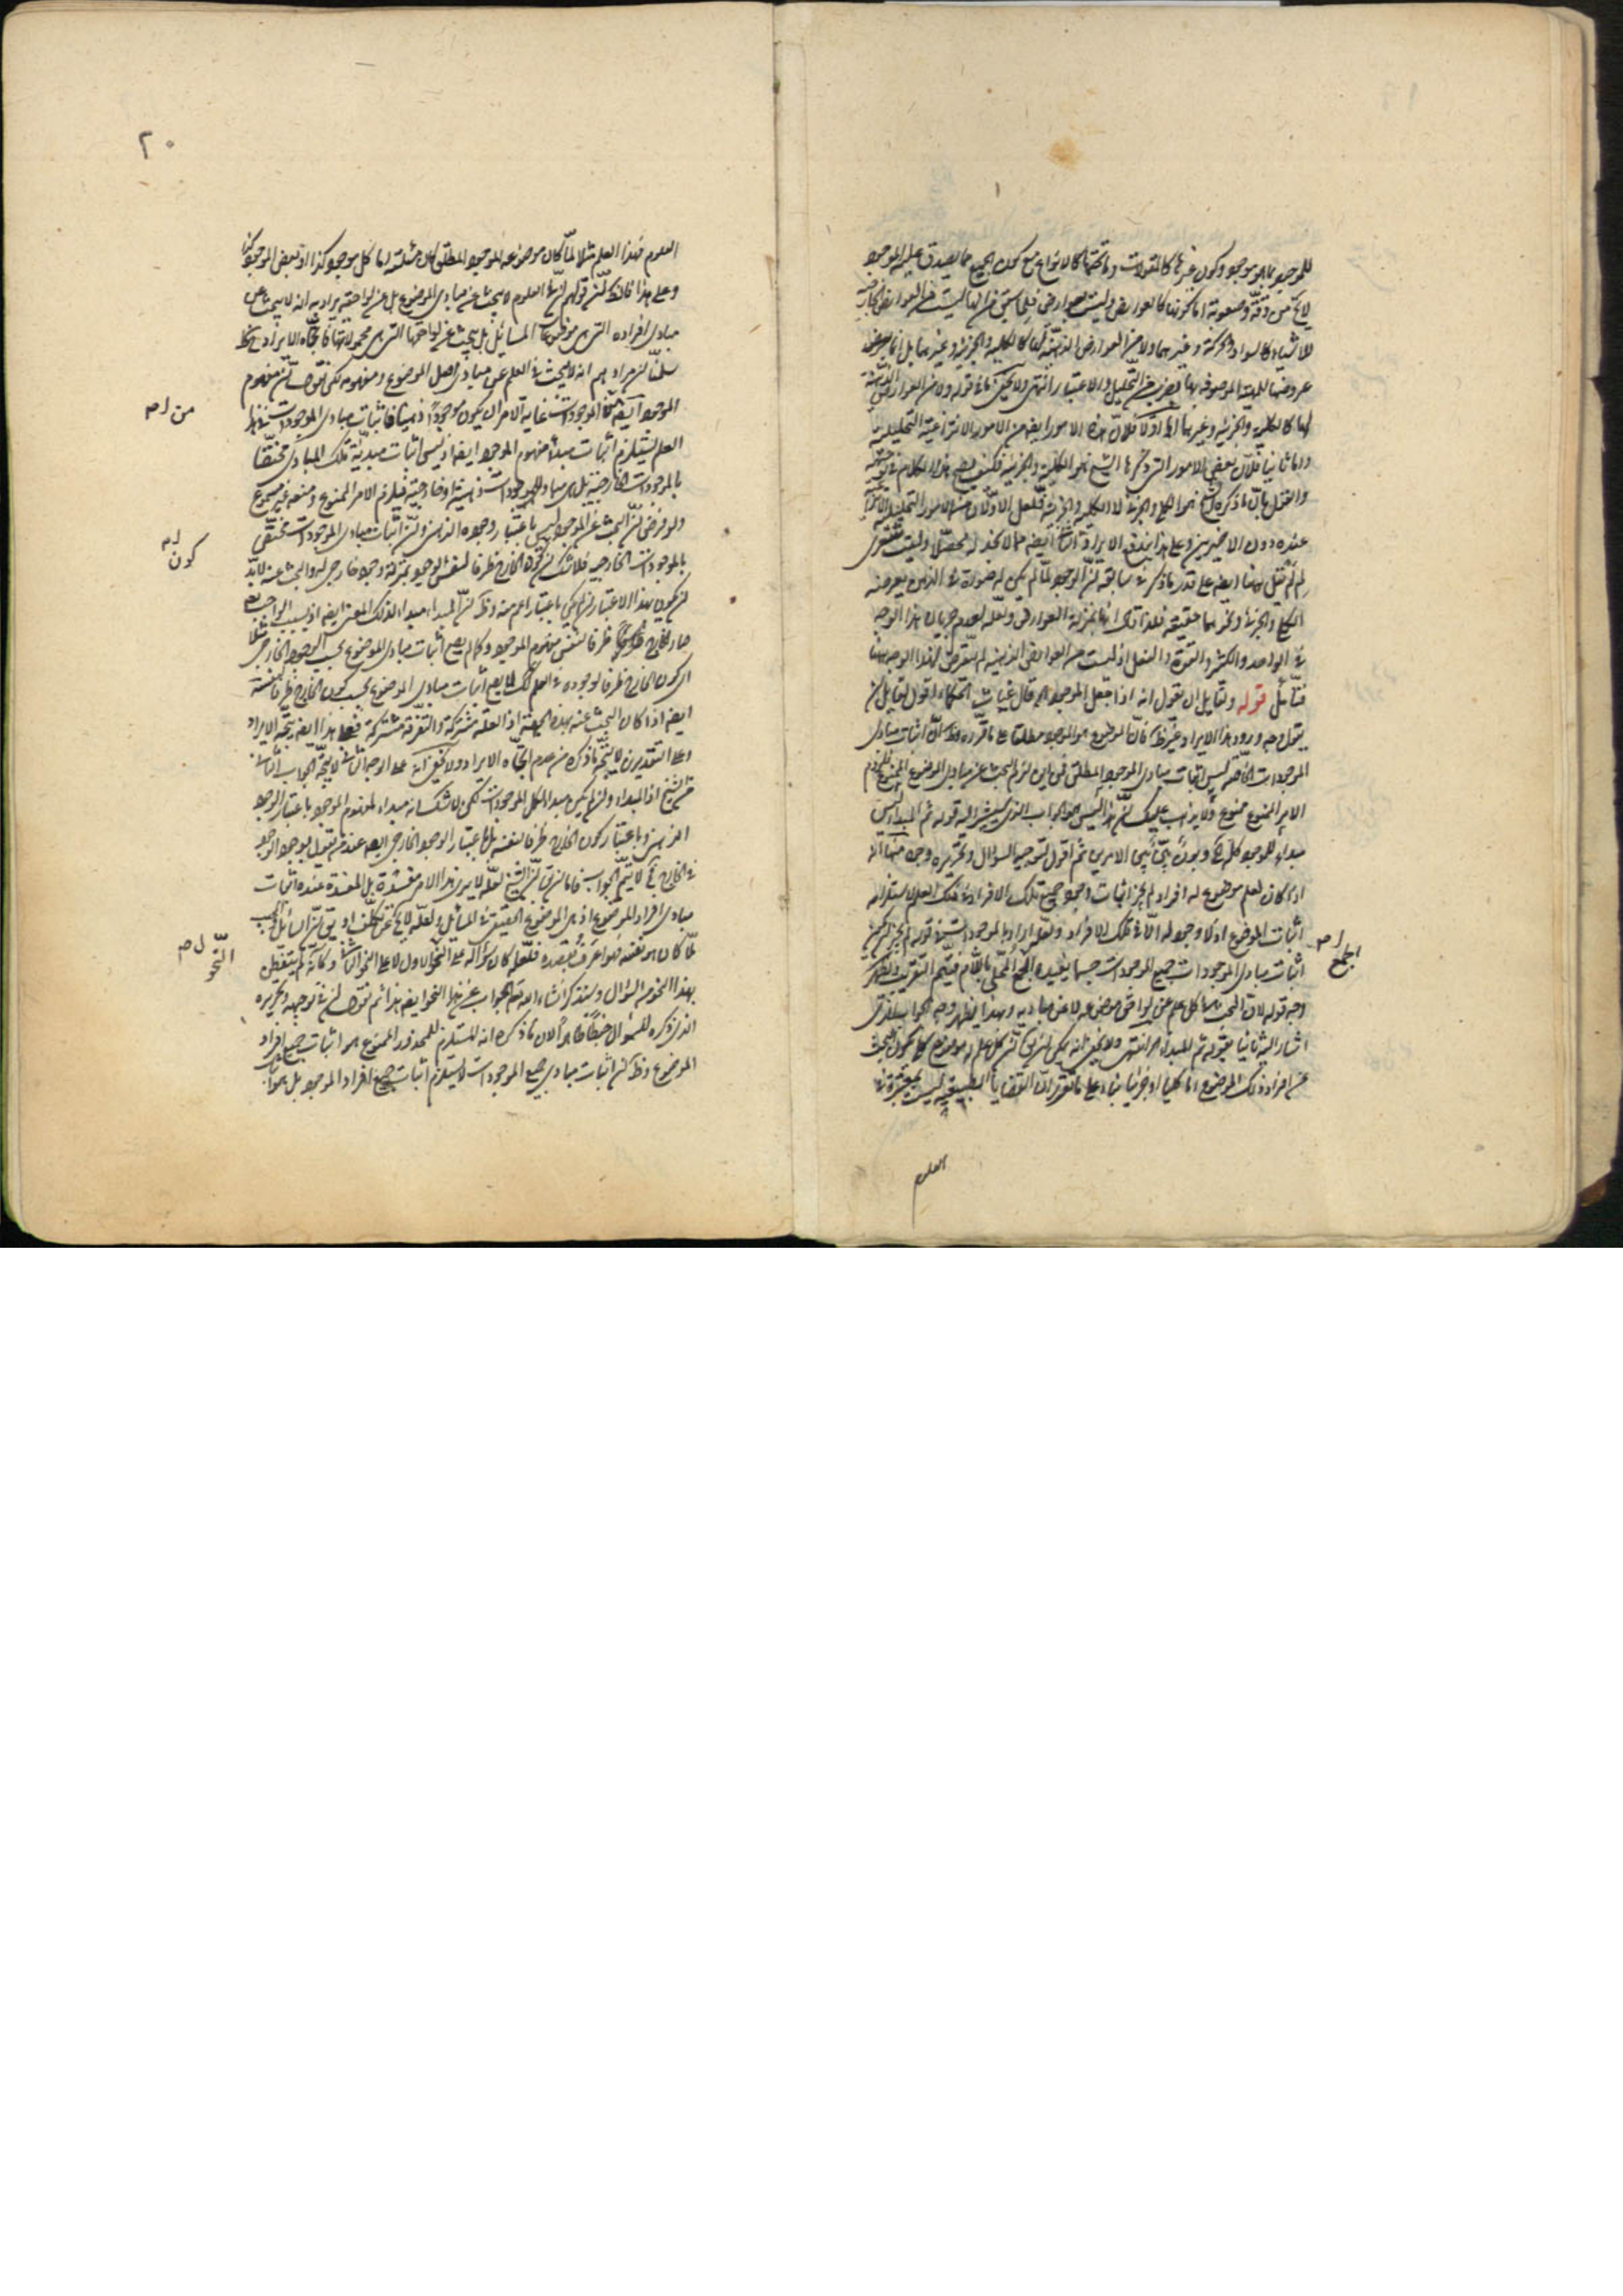 للموجود بما هو موجود وكون غيرها كالمقولات وما تحتها كالانواع مع كون الجميع مما يصدق عليه الموجود
لا يخ من دقة وصعوبة
للاشياء كالسواد والحركة وغيرهما ولا من العوارض الذهنية لها كالكلية والجزئية وغيرهما بل انما
عروضها للمهية الموصوفة بها بضرب من التحليل والاعتبار انتهى ولا يخفى ما في قوله ولا من العوارض الذهنية
لها كالكلية والجزئية وغيرهما اما اولا فلان هذه الامور ايضا من الامور الانتزاعية التحليلية
واما ثانيا فلان بعض الامور التي ذكرها الشيخ هو الكلية والجزئية فكيف يصح هذا الكلام في توجيهه
والقول بان ما ذكره الشيخ هو الكلي والجزئي لا الكلية والجزئية فلعل الاولان من الامور التحليلية
عنده دون الاخيرين وعلى هذا يندفع الايراد الثاني ايضا مما لا نجد له محصلا وليت شعري
لم لم يقل هاهنا ايضا على قدر ما ذكر في سابقه ان الوجود لما لم يكن له صورة في الذهن يعرضه
الكلي والجزئي ونحوهما حقيقة فلذا ترى انها بمنزلة العوارض ولعله لعدم جريان هذا الوجه
في الواحد والكثير والقوة والفعل اذ ليست من العوارض الذهنية لم يتعرض لهذا الوجه هاهنا
فتأمل قوله ولقايل ان يقول انه اذا جعل الموجود اه قال غياث الحكماء اقول لقايل ان
يقول وجه ورود هذا الايراد غير ظ فان الموضوع هو الموجود مطلقا على ما قرره وظ ان اثبات مبادى
الموجودات الخاصة ليس اثبات مبادى الموجود المطلق فمن اين لزم البحث عن مبادى الموضوع الممنوع فلزوم
الامر الممنوع ممنوع ولا يذهب عليك ان هذا ليس هو الجواب الذي سيشير اليه قوله ثم المبدأ ليس
مبدأ للموجود كله اه وبون بين بين الامرين ثم اقول لتوجيه السؤال وتحريره وجوه منها انه
اذا كان لعلم موضوع له افراد لم يجز اثبات وجود جميع تلك الافراد في ذلك العلم لاستلزامه
اثبات الموضوع اذ لا وجود له الا في تلك الافراد ولعله اراد بالموجودات في قوله لم يجز ان يكون
اثبات مبادى الموجودات جميع الموجودات حسبما يفيده الجمع المحلى باللام فيتم التقريب ويظهر
وجه قوله لان البحث في كل علم عن لواحق موضوعه لا عن مباديه وبهذا يظهر وجه الجواب الذي
اشار اليه ثانيا بقوله ثم المبدأ اه انتهى ولا يخفى انه يمكن ان يق ان كل علم له موضوع كلي يكون البحث
عن افراد ذلك الموضوع اما كليا او جزئيا بناء على ما تقرر ان القضايا الطبيعية ليست بمعتبرة في
العلوم
اجمع ل م
٢٠
العلوم فهذا العلم مثلا لما كان موضوعه الموجود المطلق كان مسئلته اما كل موجود كذا او بعض الموجود كذا
وعلى هذا فلا شك ان قولهم ان في العلوم لا يبحث عن مبادى الموضوع بل عن لواحقه يراد به انه لا يبحث عن
مبادى افراده التي هي موضوعات المسائل بل يبحث عن لواحقها التي هي محمولاتها فاتجاه الايراد ح ظ
سلمنا ان مرادهم انه لا يبحث في العلم عن مبادى اصل الموضوع ومفهومه لكن نقول ان مفهوم
الموجود ايضا من الموجودات غاية الامر ان يكون موجودا ذهنيا فاثبات مبادى الموجودات في هذا
العلم يستلزم اثبات مبدأ مفهوم الموجود ايضا اذ ليس اثبات مبدئية تلك المبادى مختصا
بالموجودات الخارجية بل هي مباد للموجودات ذهنية او خارجية فيلزم الامر الممنوع ومنعه غير مسموع
ولو فرض ان البحث عن الموجود ليس باعتبار وجوده الذهني وان اثبات مبادى الموجودات مختص
بالموجودات الخارجية فلا شك ان كون الخارج ظرفا لنفس الوجود بمنزلة وجود خارجي له والبحث عنه لابد
ان يكون بهذا الاعتبار ان لم يكن باعتبار اعم منه وظ ان المبدأ مبدأ لذلك المعنى ايضا اذ بسبب الواجب تع
صار الخارج ظرفا لنفس مفهوم الموجود وكما لم يصح اثبات مبادى الموضوع بحسب الوجود الخارجي مثلا
اي كون الخارج ظرفا لوجوده في العلم كذلك لا يصح اثبات مبادى الموضوع بحسب كون الخارج ظرفا لنفسه
ايضا اذا كان البحث عنه بهذه الحيثية اذ العلة مشتركة والتفرقة مشتركة فعلى هذا ايضا يتجه الايراد
وعلى التقديرين لا يتجه ما ذكره من عدم اتجاه الايراد ولا يخفى انه على الوجه الثاني لا يتجه الجواب الثاني
من الشيخ اذ المبدأ وان لم يكن مبدأ لكل الموجودات لكن لا شك انه مبدأ لمفهوم الموجود باعتبار الوجود
الذهني وباعتبار كون الخارج ظرفا لنفسه بل باعتبار الوجود الخارجي ايضا عند من يقول بوجود الوجود
في الخارج فح لا يتم الجواب فاما ان يق ان الشيخ لعله لا يرى هذا الامر مفسدة بل المفسدة عنده اثبات
مبادى افراد الموضوع اذ هي الموضوع الحقيقي في المسائل ولعله لا يخ عن تكلف او يق ان السائل والمجيب
لما كان هو نفسه فهو اعرف بقصده فلعله كان سؤاله على النحو الاول لا على النحو الثاني وكأنه لم يتفطن
بهذا النحو من السؤال وسنذكر ان شاء الله تعالى الجواب عن هذا النحو ايضا هذا ثم نقول ان في توجيهه وتحريره
الذي ذكره للسؤال خبطا ظاهرا لان ما ذكره انه المستلزم للمحذور الممنوع هو اثبات جميع افراد
الموضوع وظ ان اثبات مبادى جميع الموجودات لا يستلزم اثبات جميع افراد الموجود بل هو
من ل م
كون ل م
النحو ل م